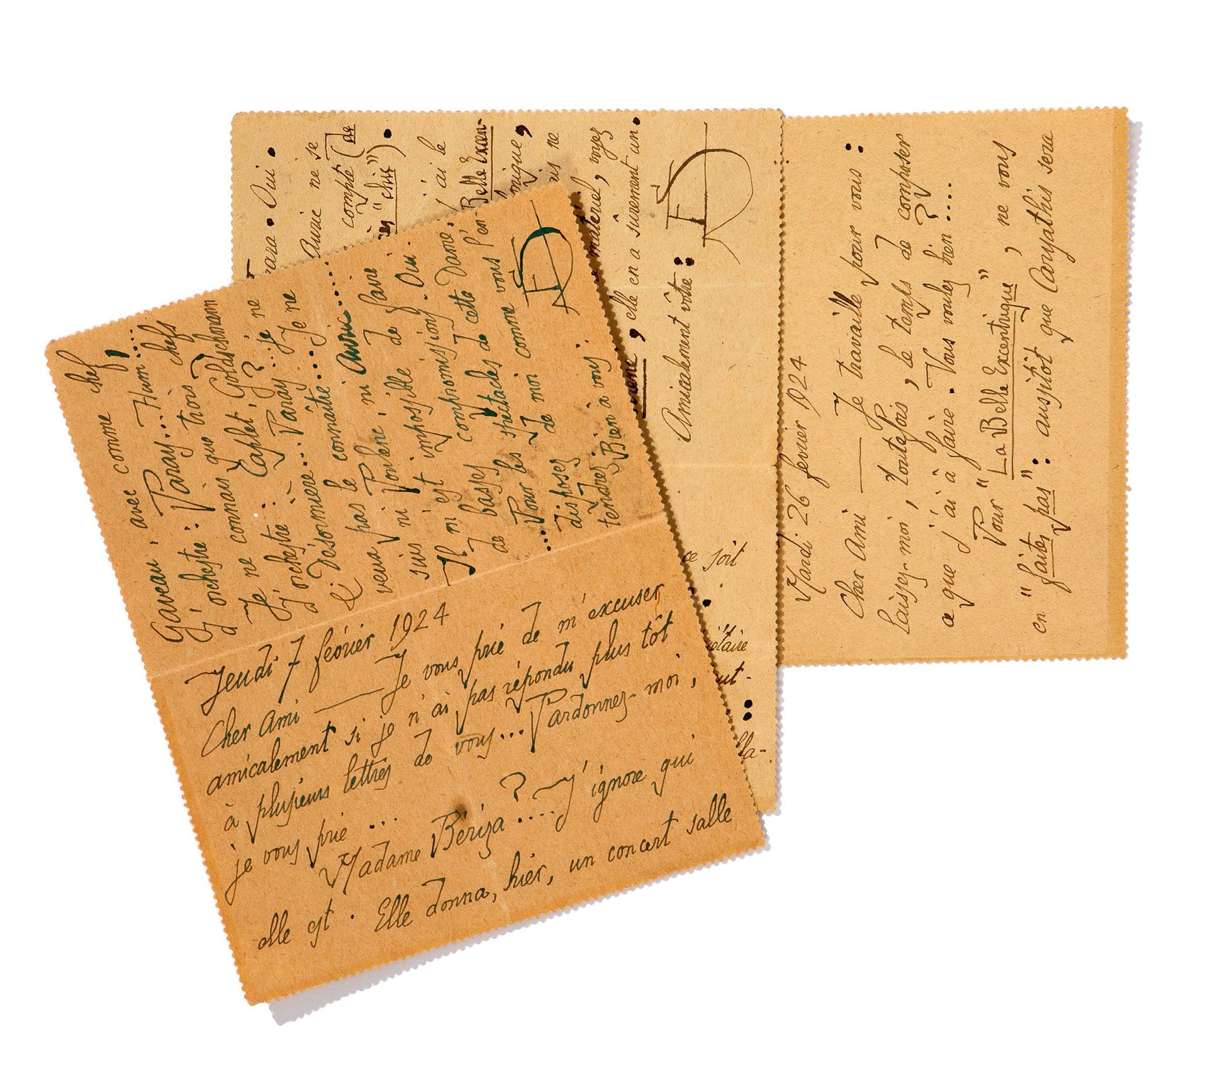 Jeudi 7 février 1924
Cher Ami — Je vous prie de m'excuser
amicalement si je n'ai pas répondu plus tôt
à plusieurs lettres de vous... Pardonnez-moi,
je vous prie ...
Madame Bériza ?.... J'ignore qui
elle est. Elle donna, hier, un concert salle
Gaveau, avec comme chef
d'orchestre : Paray... Hum!
Je ne connais que trois chefs
d'orchestre : Caplet, Golschmann
& Désormière... Paray ? Je ne
veux pas le connaître....
suis ni Poulenc ni Auric....
Il m'est impossible de faire
de basses compromissions. Oui.
Pour les spectacles de cette Dame,
disposez de moi comme vous l'en-
tendrez. Bien à vous :
ES
Mardi 26 février 1924
Cher Ami — Je travaille pour vous :
laissez-moi, toutefois, le temps de composer
ce que j'ai à faire. Vous voulez bien ?....
Pour "La Belle Excentrique", ne vous
en "faites pas" : aussitôt que Caryathis sera
Oui.
Auric ne se
compte (de
"chic").
j'ai le
Belle Excen-
ne
matériel, voyez
, elle en a sûrement un.
Amicalement vôtre :
ES
ce soit